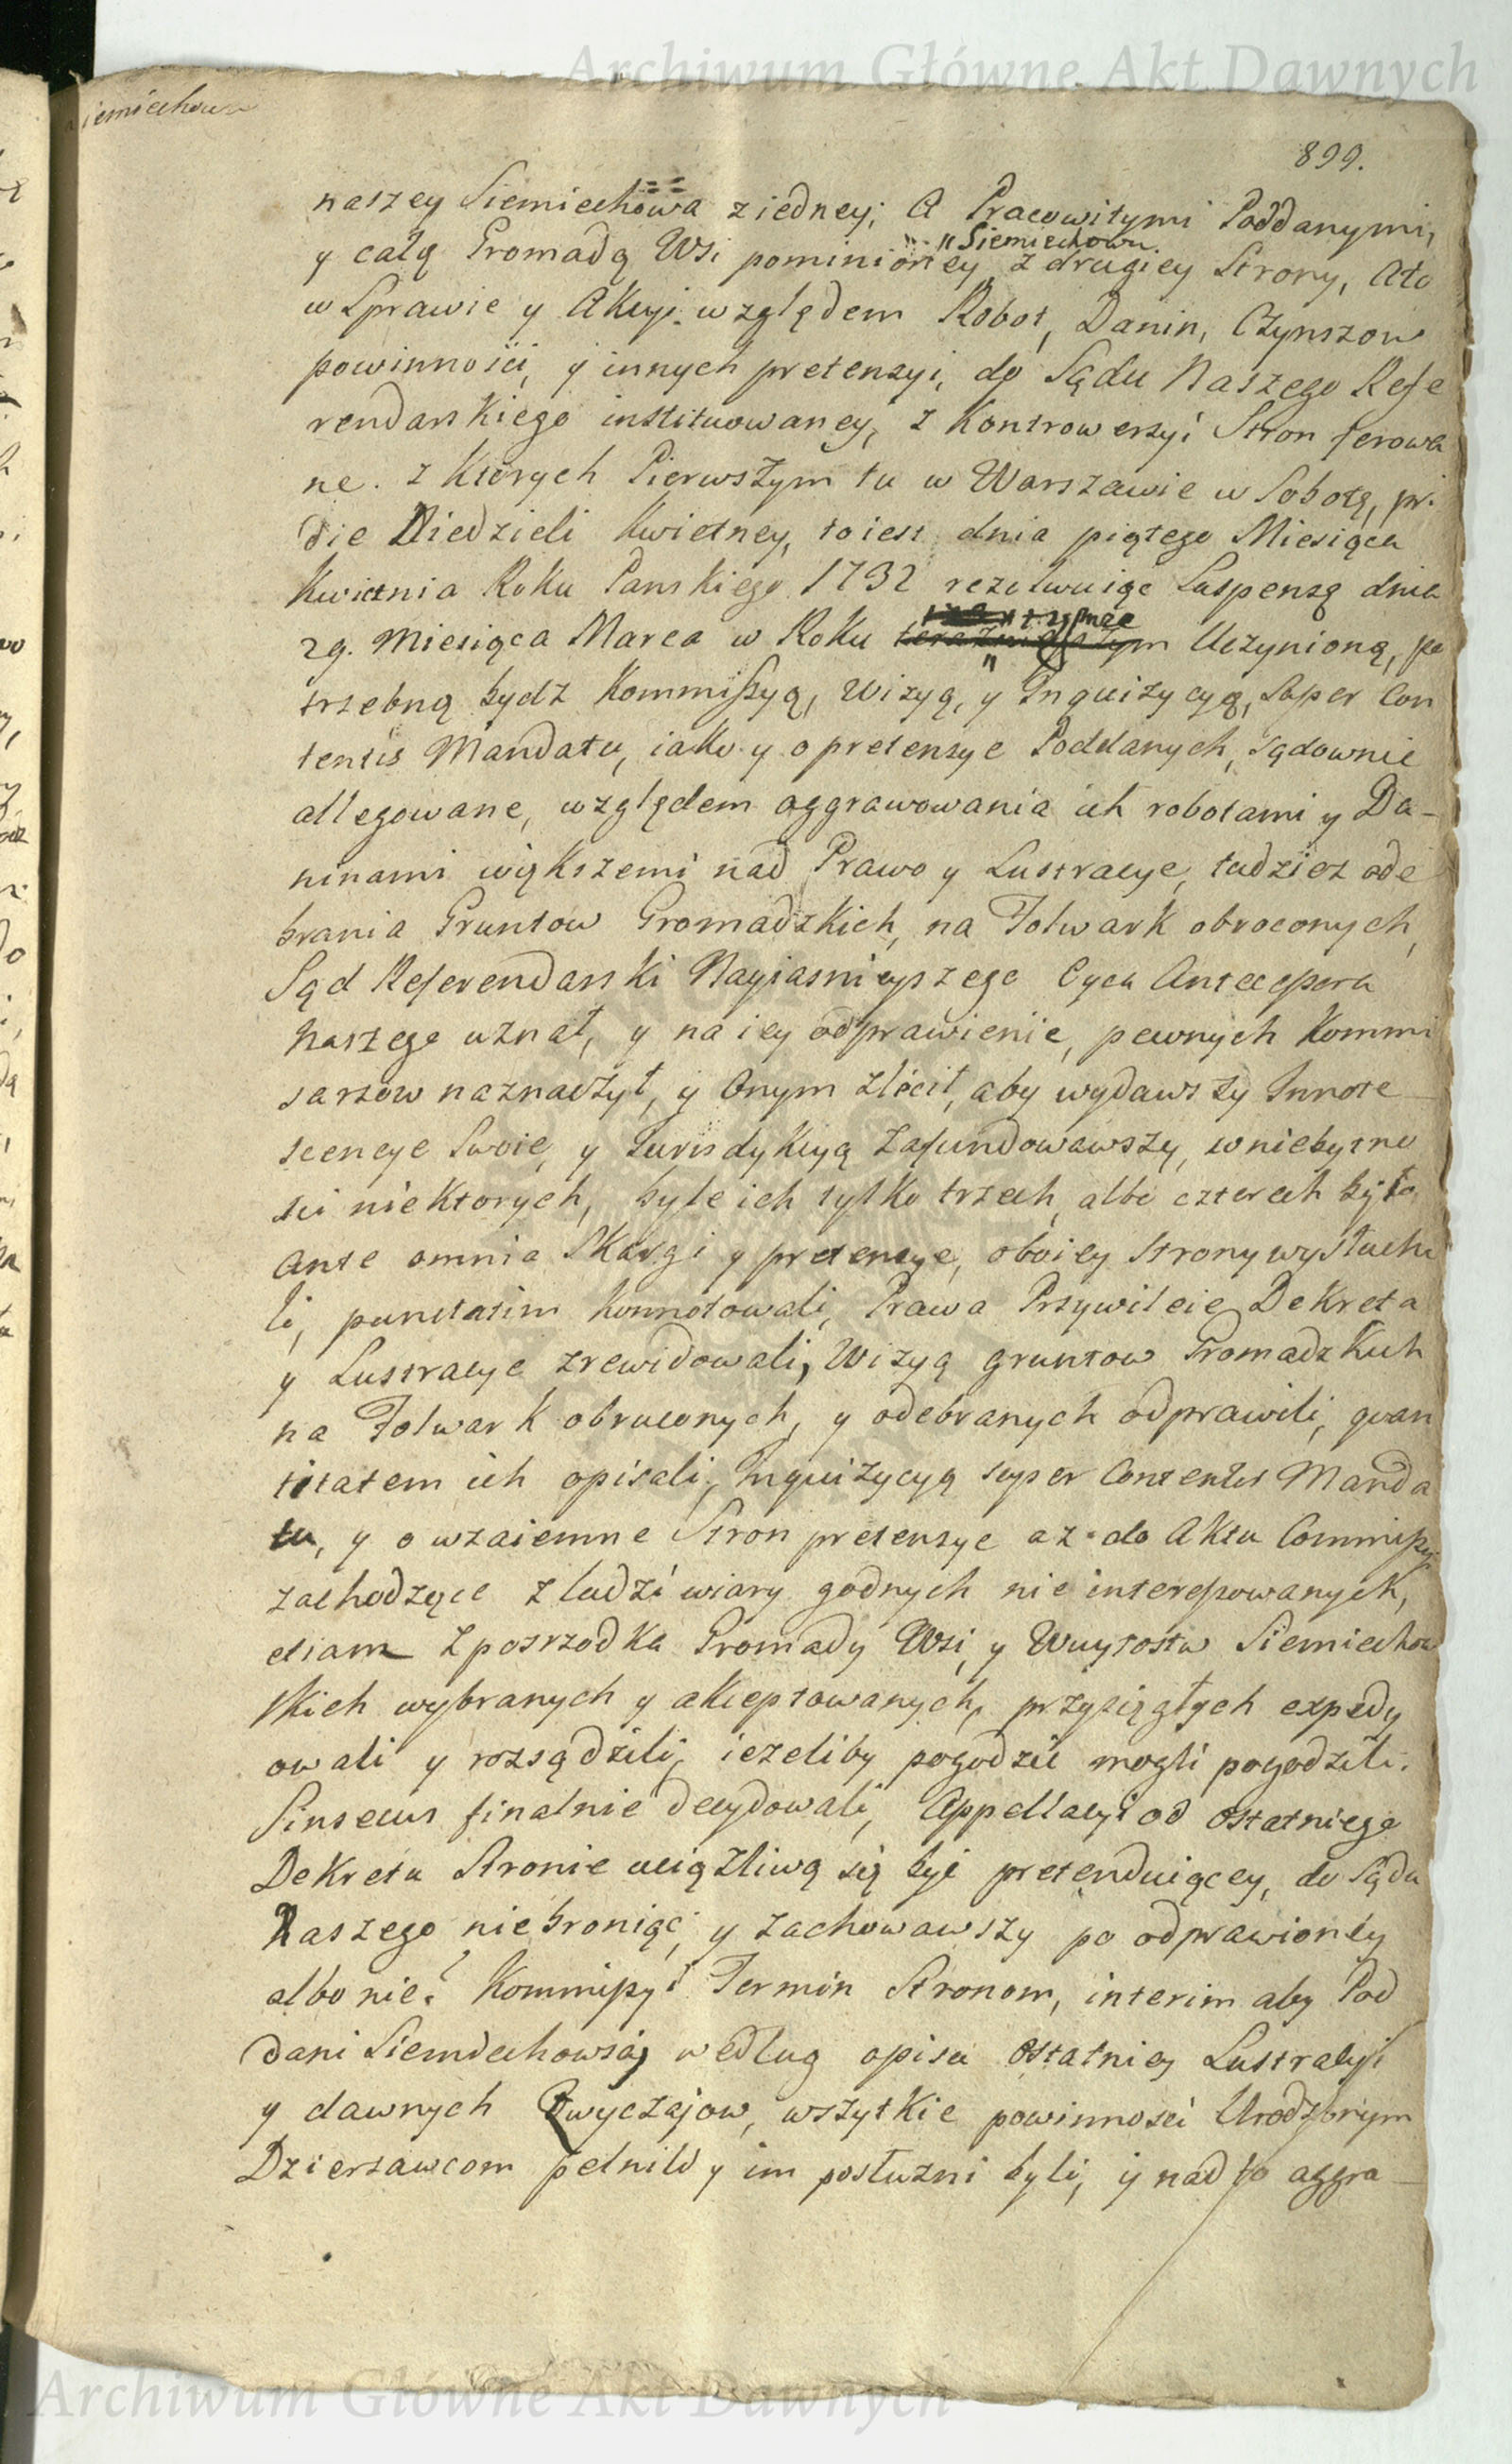 Archiwum Główne Akt Dawnych
iemiechowa
899.
naszey Siemiechowa ziedney; A Pracowitymi Poddanymi,
y całą Gromadą Wsi pominioney z drugiey Strony, Ato
Siemiechowa.
w Sprawie y Akcyi względem Robot, Danin, Czynszow
powinności, y innych pretensyi, do Sądu Naszego Refe
rendarskiego instituowaney, z Kontrowersyi Stron ferowa
ne. z Ktorych Pierwszym tu w Warszawie w Sobotę, pri
die Niedzieli Kwietney, toiest dnia piątego Miesiąca
Kwietnia Roku Panskiego 1732 rezolwuiąc Suspensę dnia
29. Miesiąca Marca w Roku Uczynioną, po
trzebną bydz Kommissyą, Wizyą, y Inquizycyą, Super Con
tentis Mandatu, iako y o pretensye Poddanych, Sądownie
allegowane, względem aggrawowania ich robotami y Da-
ninami większemi nad Prawo y Lustracye, tudziez ode
brania Gruntow Gromadzkich, na Folwark obroconych,
Sąd Referendarski Nayiasnieyszego Oyca Antecessora
Naszego uznał, y na iey odprawienie, pewnych Kommi
sarzow naznaczył, y Onym zlecił, aby wydawszy Innote
scencye Swoie, y Jurisdykcyą zafundowawszy, w niebytno
sci niektorych, byle ich tylko trzech, albo czterech było
Ante omnia Skargi y pretensye, oboiey Strony wysłucha
li, punctatim konnotowali, Prawa Przywileie Dekreta
y Lustracye zrewidowali, Wizyą gruntow Gromadzkich
na Folwark obruconych, y odebranych odprawili, quan
titatem ich opisali, Inquizycyą super Contentis Manda
tu, y o wzaiemne Stron pretensye az do Aktu Commissyi
zachodzące z ludzi wiary godnych nie interessowanych,
etiam z posrzodka Gromady Wsi, y Wuytostw Siemiechow
skich wybranych y akceptowanych, przysięgłych expedy
owali y rozsądzili, iezeliby pogodzic mogli pogodzili.
Sinsecus finalnie decydowali, Appellacyi od ostatniego
Dekretu Stronie uciążliwą się byc pretenduiącey, do Sądu
Naszego niebroniąc, y zachowawszy po odprawioney
albo nie? Kommissyi Termin Stronom, interim aby Pod
dani Siemiechowscy według opisu ostatniey Lustracyi
y dawnych Zwyczajow, wszytkie powinnosci Urodzonym
Dzierzawcom pełnili y im posłuzni byli, y nad to aggra-
Archiwum Główne Akt Dawnych